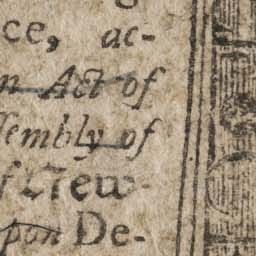 ce, ac-
n Act of
ſſembly of
f New-
pon De-